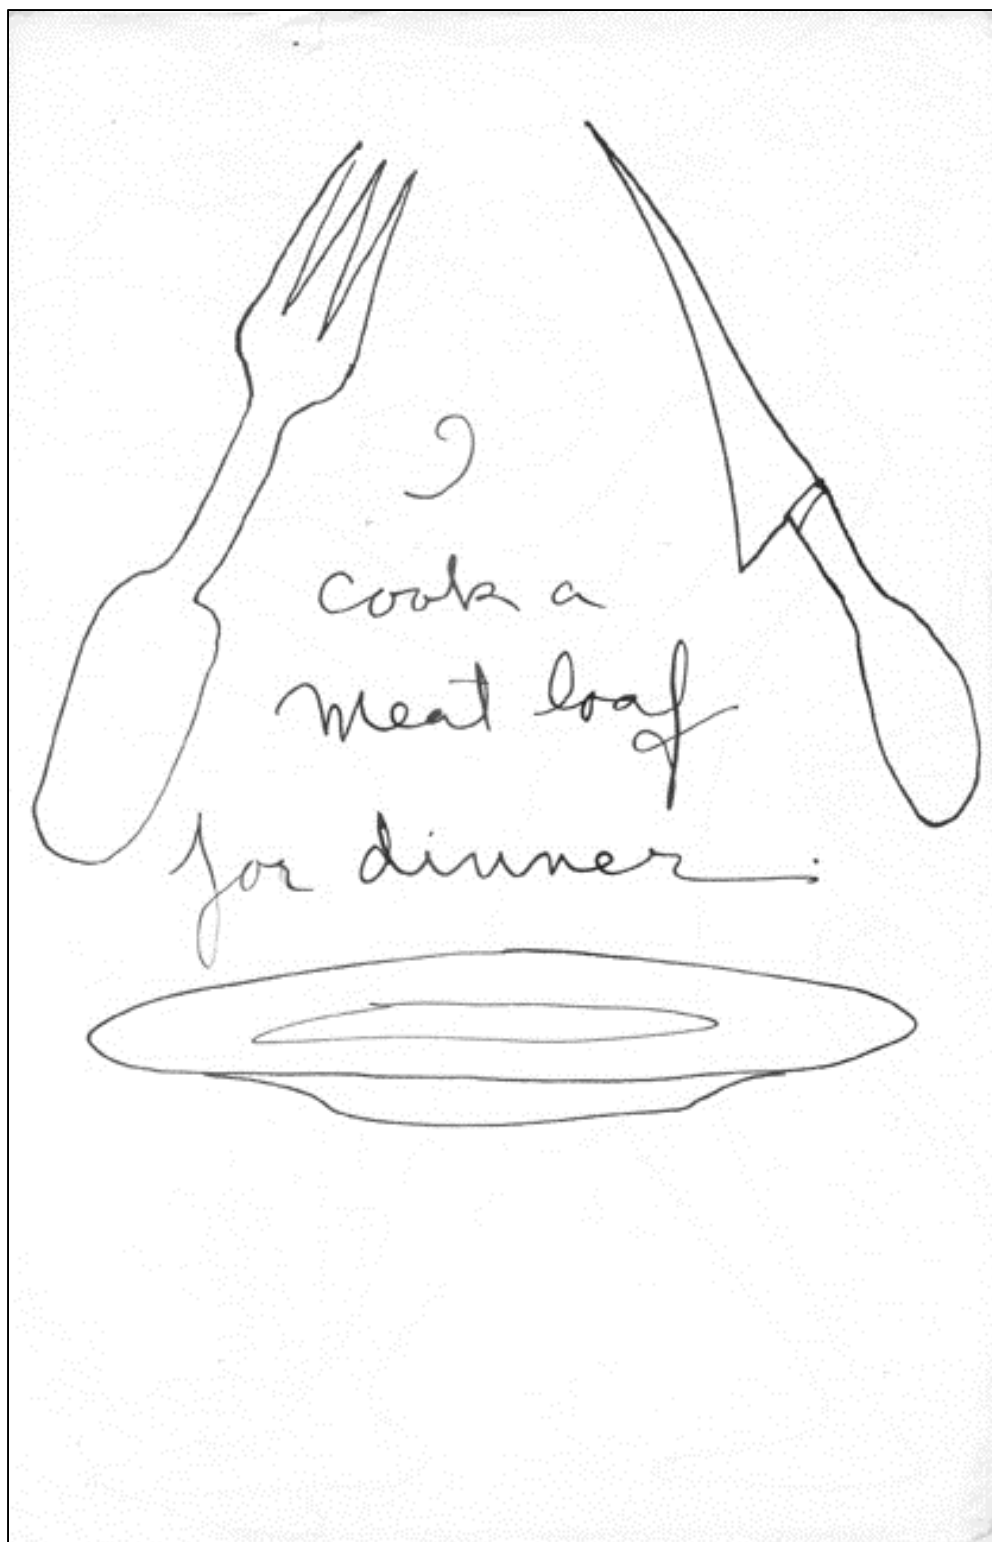 I
cook a
meat loaf
for dinner.